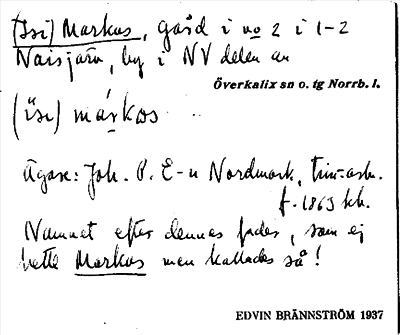 (Isi) Markus, gård i no 2 i 1-2
Naisjärv, by i NV delen av
Överkalix sn o. tg Norrb. l.
(isi) markos
Ägare: Joh. P. E-n Nordmark, tim.arb.
f. 1863 kh.
Namnet efter dennes fader, som ej
hette Markus men kallades så!
EDVIN BRÄNNSTRÖM 1937